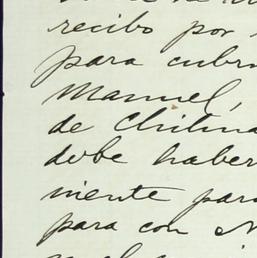 recibo por
para cubr
Manuel,
de Chihua
debe haber
mente para
para con